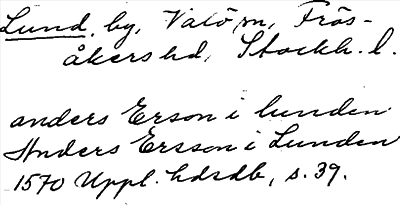 Lund, by, Valö sn, Frös-
åkers hd, Stockh. l.
anders Erson i lunden
Anders Ersson i Lunden
1570 Uppl. hdrdb, s. 39.